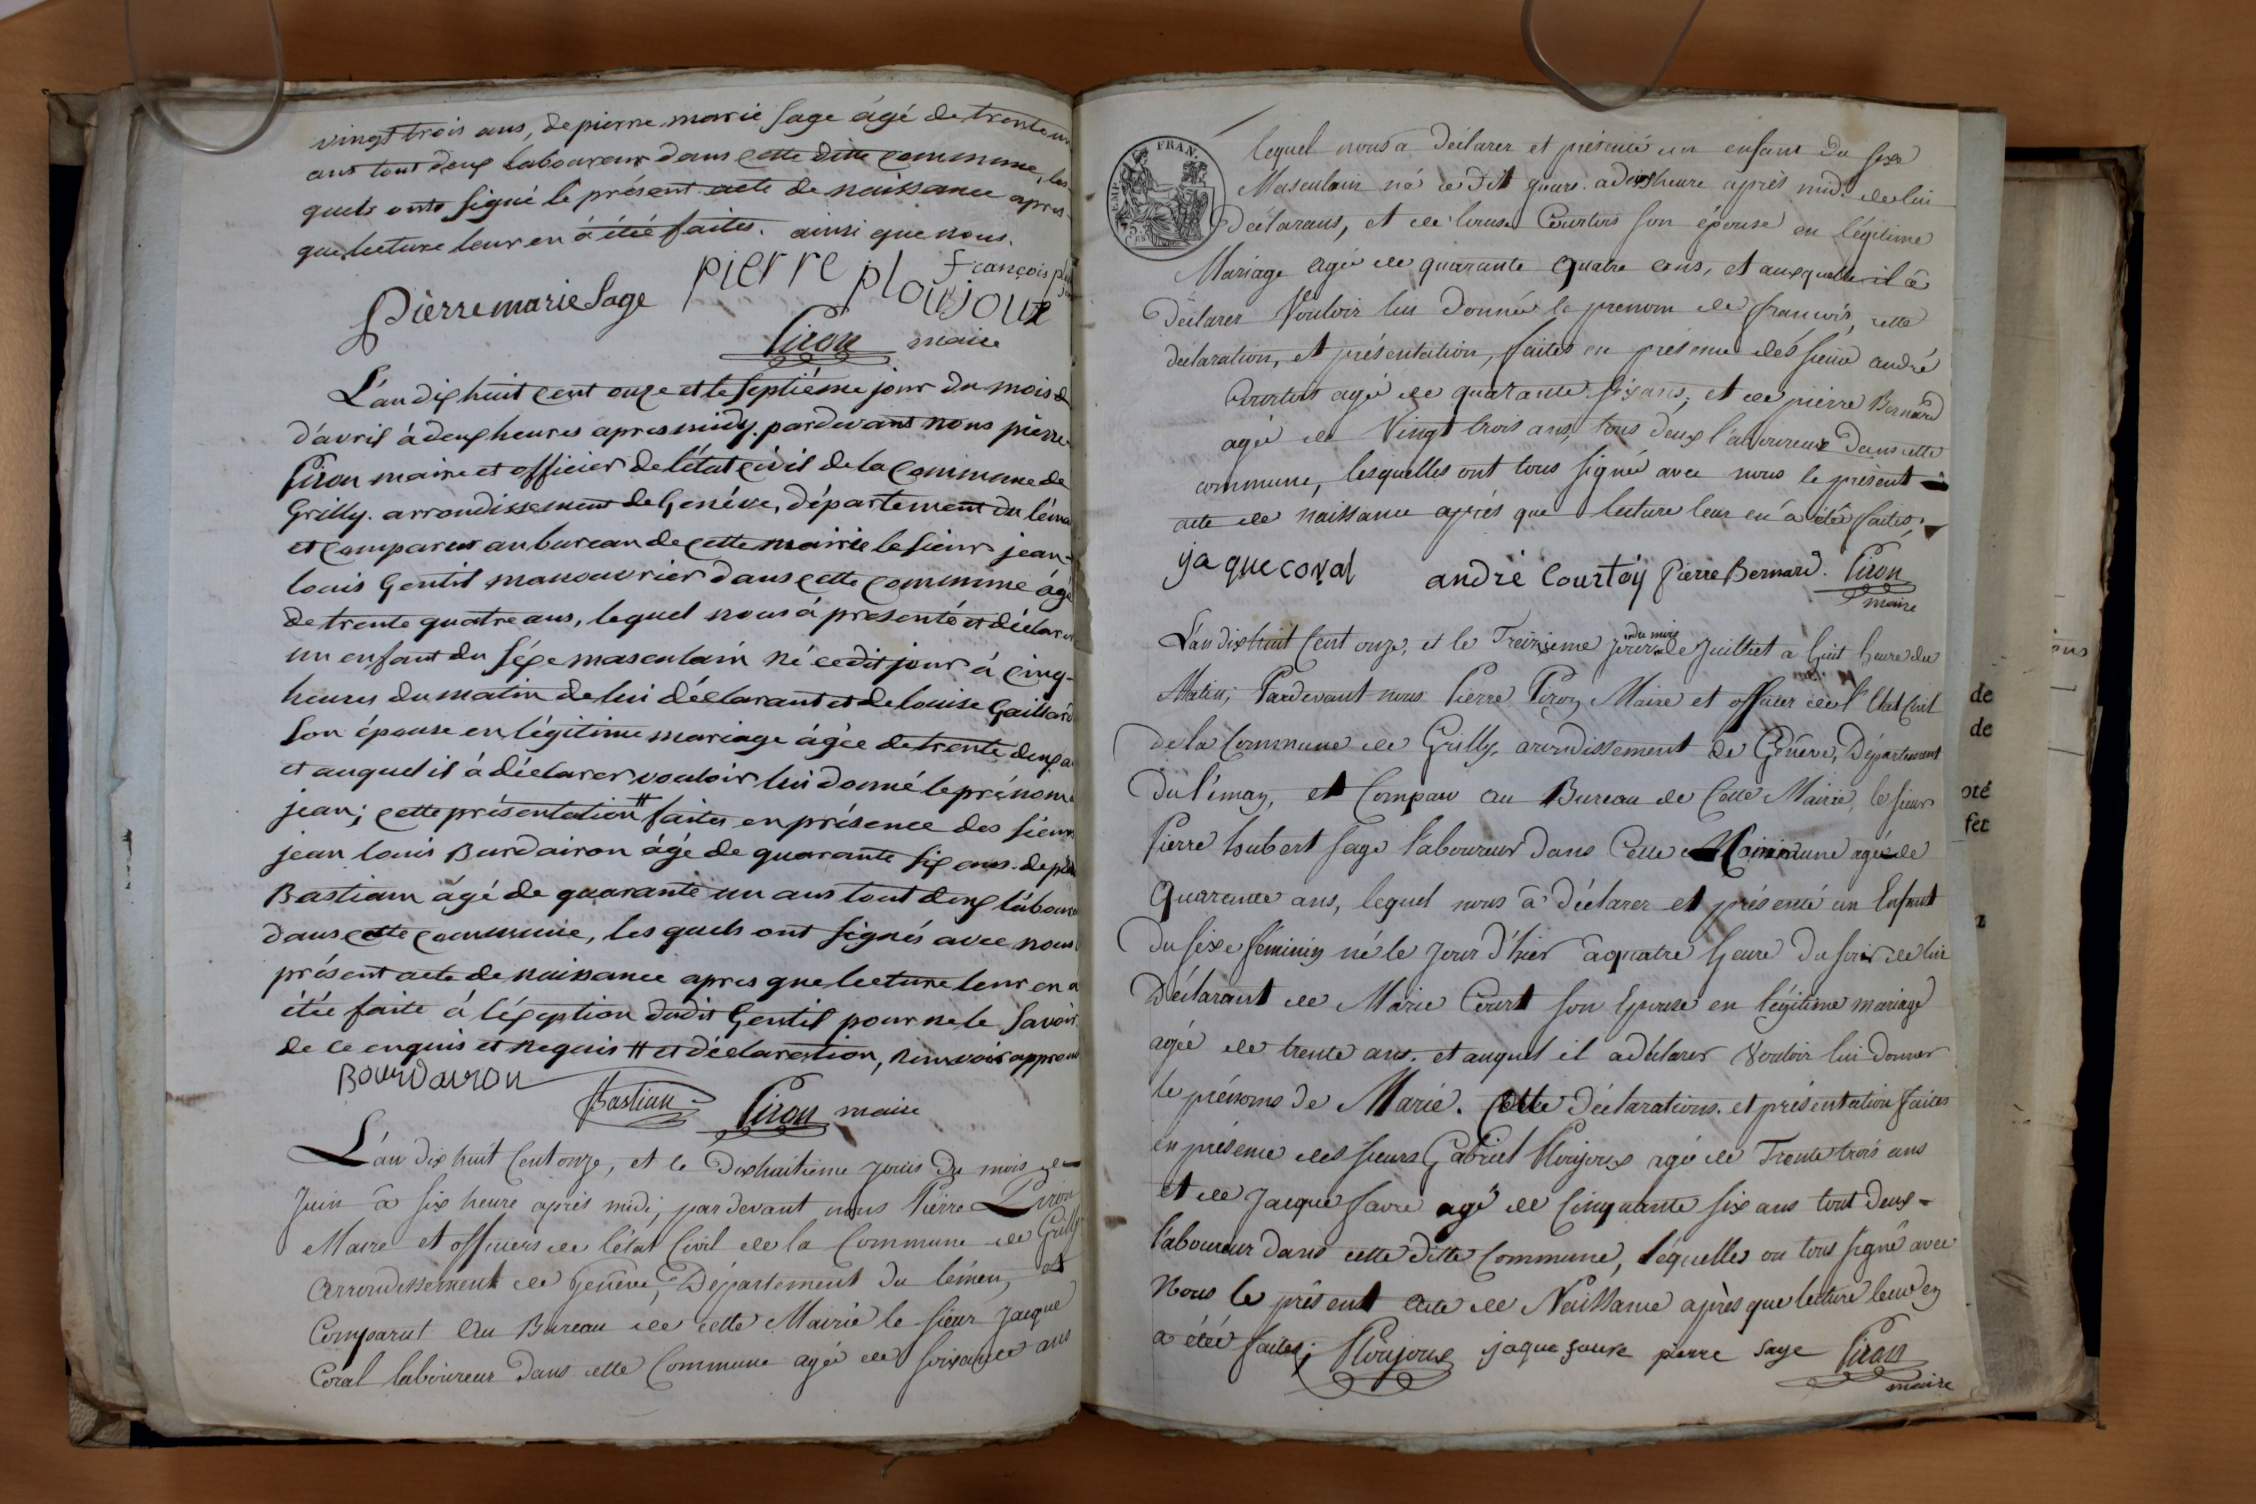 vingt trois ans, de pierre marie Sage âgé de trente un
ans tout deux laboureur dans cette ditte commune, les
quels onts signé le présent acte de naissance apres
que lecture leur en à étée faites. ainsi que nous.
françois
pierre ploujoux
pierre marie Sage
Piron maire
L'an dix huit cent onze et le septiéme jour du mois d
d'avril à deux heures apres midy. pardevant nous pierre
Piron maire et officier de l'état civil de la commune de
Grilly. arrondissement de Genéve, département du léma
et comparut au bureau de cette mairie le sieur jean-
louis Gentil manouvrier dans cette commune âgé
de trente quatre ans, lequel nous à presenté et déclar
un enfant du séxe masculain né cedit jour à cinq-
heures du matin de lui déclarant et de louise Gaillard
son épouse en légitime mariage âgée de trente deux a
et auquel il à déclarer vouloir lui donné le prénom
jean; cette présentation # faites en présence des sieurs
jean louis Burdairon âgé de quarante six ans. de
Bastiann âgé de quarante un ans tout deux labour
dans cette commune, les quels ont signés avec nous
présent acte de naissance apres que lecture leur en a
étée faite à léxeption dudit Gentil pour ne le Savoir
de ce enquis et Requis # et déclaration, Renvoir approu
Bourdairon
Bastian Piron maire
L'an dix huit cent onze, et le dixhuitieme jours du mois de
Juin à six heure après midi, par devant nous Pierre Piron
Maire et officiers de l'état Civil de la Commune de Grilly
arrondissement de Genêve, Département du léman, et
Comparut au Bureau de cette Mairie le sieur Jaque
Coral laboureur dans cette Commune agée de soixante ans
TIMB. EMP. FRAN.
lequel nous a déclarer et présenté un enfant du sexe
Masculain né ce dit jours. a deux heure après midi de lui
déclarant, et de louise Courtois son épouse en légitime
Mariage agée de quarante quatre ans, et auxquelle il à
déclarer Vouloir lui donnée le prenom de francois, cette
déclaration, et présentation, faites en présence des sieurs andré
Courtois agé de quarante six ans, et de pierre Bernard
agée de Vingt trois ans, tous deux laboureux dans cette
commune, lesquelles ont tous signée avec nous le présent
acte de naissance après que lecture leur en à étée faites;
jaque coral andré Courtoij Pierre Bernard. Piron
maire
L'an dix huit Cent onze, et le Treizieme jour du mois de Juilliet a huit heure du
Matin; Pardevant nous Pierre Piron Maire et officier de l'Etat Civil
de la Commune de Grilly, arrondissement de Genêve, Département
du l'éman, et Comparu au Bureau de Cette Mairie, le sieur
Pierre hubert Sage laboureur dans Cette Commune agée de
Quarante ans, lequel nous à déclarer et présenté un Enfant
du sixe feminin né le jour d'hier à quatre heure du soir de lui
Déclarant de Marie Court son Epouse en légitime mariage
agée de trente ans. et auquel il a déclarer Vouloir lui donner
le prénoms de Marie. Cette déclarations. et présentation faites
en présence des sieurs Gabriel Ploujoux agée de Trente trois ans
et de Jacque favre agé de Cinquante six ans tout deux-
laboureur dans cette ditte Commune, léquelles on tous signé avec
Nous le présent acte de Naissance après que lecture leur en
a étée faites; Ploujoux jaque favre pierre sage Piron
maire
de
de
oté
fec